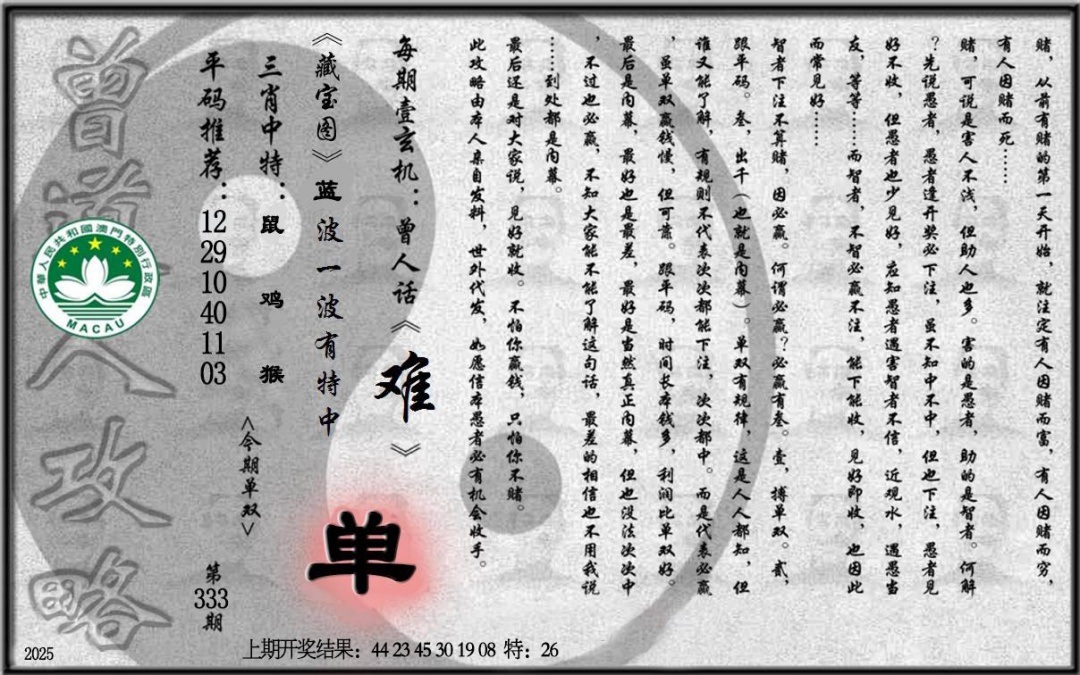 赌，从前有赌的第一天开始，就注定有人因赌而富，有人因赌而穷，
有人因赌而死……
赌，可说是害人不浅，但助人也多。害的是愚者，助的是智者。何解
？先说愚者，愚者逢开奖必下注，虽不知中不中，但也下注，愚者见
好不收，但愚者也少见好，应知愚者遇害智者不信，近观水，遇愚当
友，等等……而智者，不智必赢不注，能下能收，见好即收，也因此
而常见好……
智者下注不算赌，因必赢。何谓必赢？必赢有叁。壹，搏单双。贰，
跟单码。叁，出千（也就是内幕）。单双有规律，这是人人都知，但
谁又能了解，有规则不代表次次都能下注，次次都中。而是代表必赢
，虽单双赢钱慢，但可靠。跟单码，时间长本钱多，利润比单双好。
最后是内幕，最好也是最差，最好是当然真正内幕，但也没法次次中
，不过也必赢，不知大家能不能了解这句话，最差的相信也不用我说
……到处都是内幕。
最后还是对大家说，见好就收。不怕你赢钱，只怕你不赌。
此攻略由本人亲自发料，世外代发，如愿信本愚者必有机会收手。
每期壹玄机：曾人话《难》
《藏宝图》蓝波一波有特中
单
三肖中特：鼠 鸡 猴
<今期单双>
平码推荐：12 29 10 40 11 03
第333期
曾道人攻略
中華人民共和國澳門特別行政區
MACAU
2025
上期开奖结果：44 23 45 30 19 08 特：26